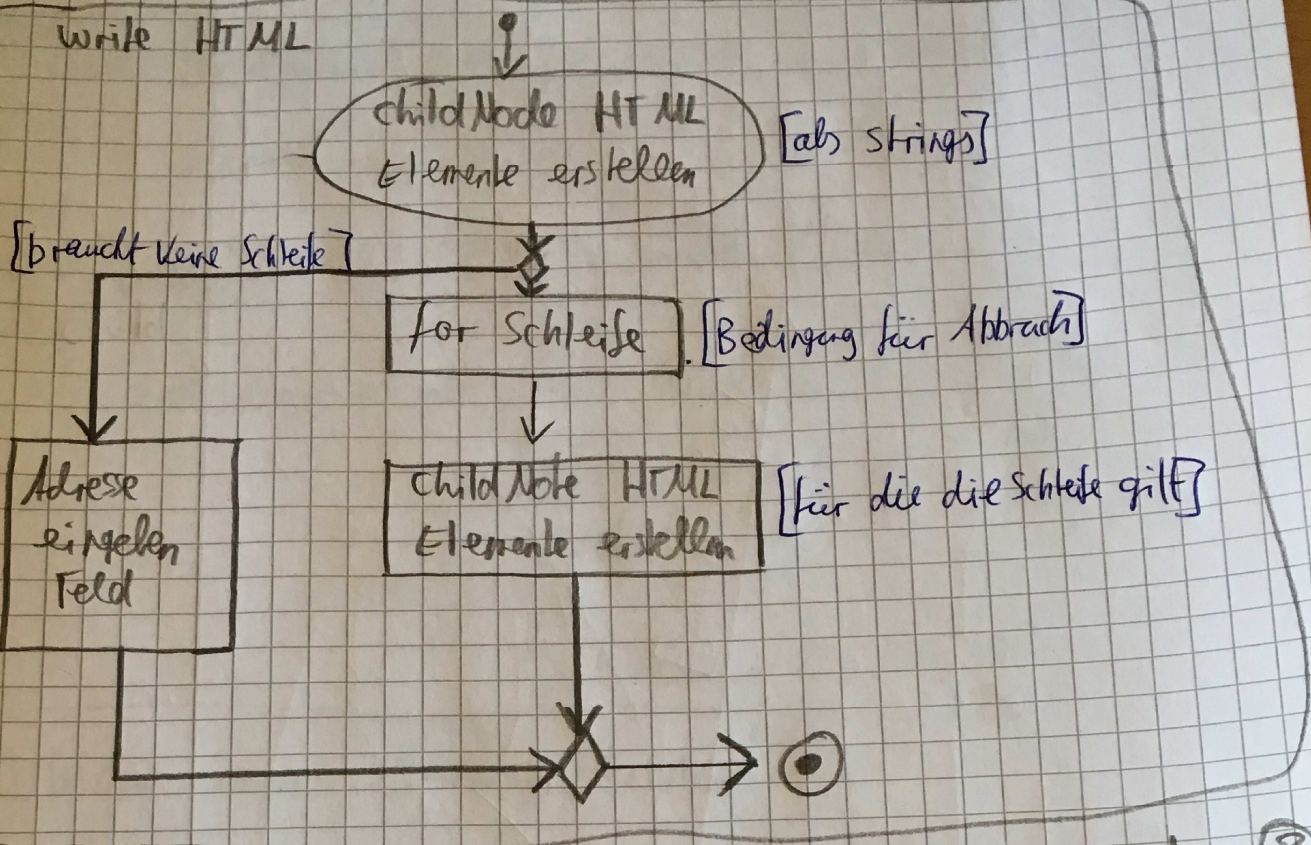 write HTML
ChildNode HTML
Elemente erstellen
[als strings]
[braucht keine Schleife]
for Schleife
[Bedingung für Abbruch]
Adresse
eingeben
Feld
ChildNote HTML
Elemente erstellen
[für die die Schleife gilt]